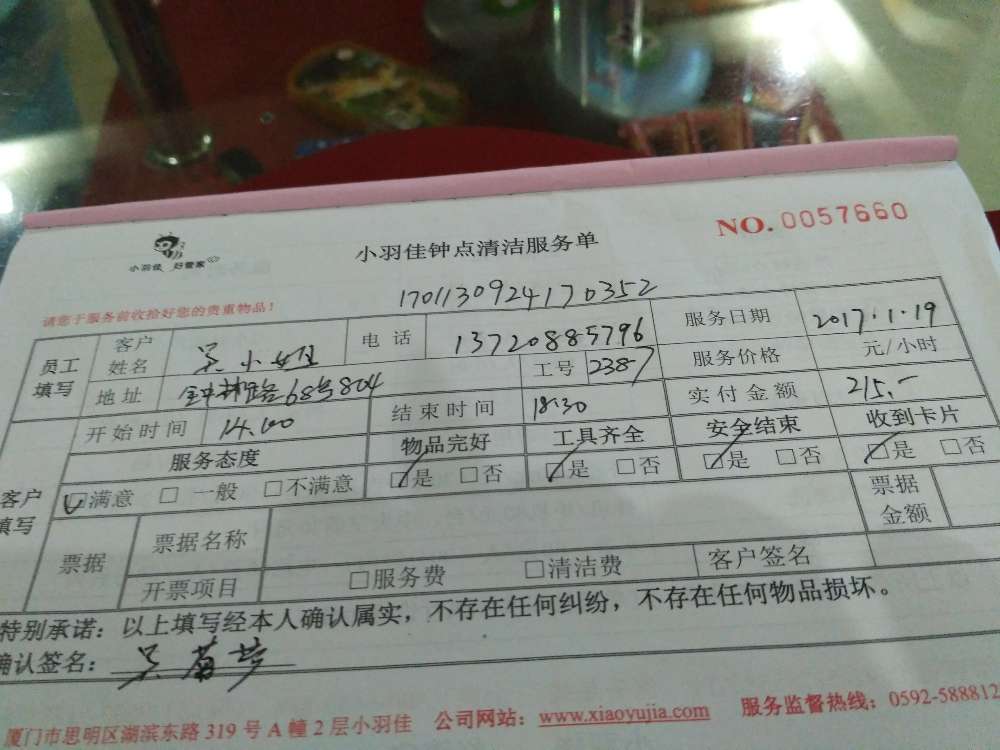 NO. 0057660
小羽佳 好管家
小羽佳钟点清洁服务单
1701130924170352
请您于服务前收拾好您的贵重物品!
员工填写 客户姓名 吴小姐 电话 13720885796 服务日期 2017.1.19
地址 68号804 工号 2387 服务价格 元/小时
开始时间 14.00 结束时间 18:30 实付金额 215.-
客户填写 服务态度 物品完好 工具齐全 安全结束 收到卡片
☑满意 □一般 □不满意 ☑是 □否 ☑是 □否 ☑是 □否 ☑是 □否
票据 票据名称 票据金额
开票项目 □服务费 □清洁费 客户签名
特别承诺：以上填写经本人确认属实，不存在任何纠纷，不存在任何物品损坏。
确认签名：吴
厦门市思明区湖滨东路 319 号 A 幢 2 层小羽佳 公司网站：www.xiaoyujia.com 服务监督热线：0592-588812